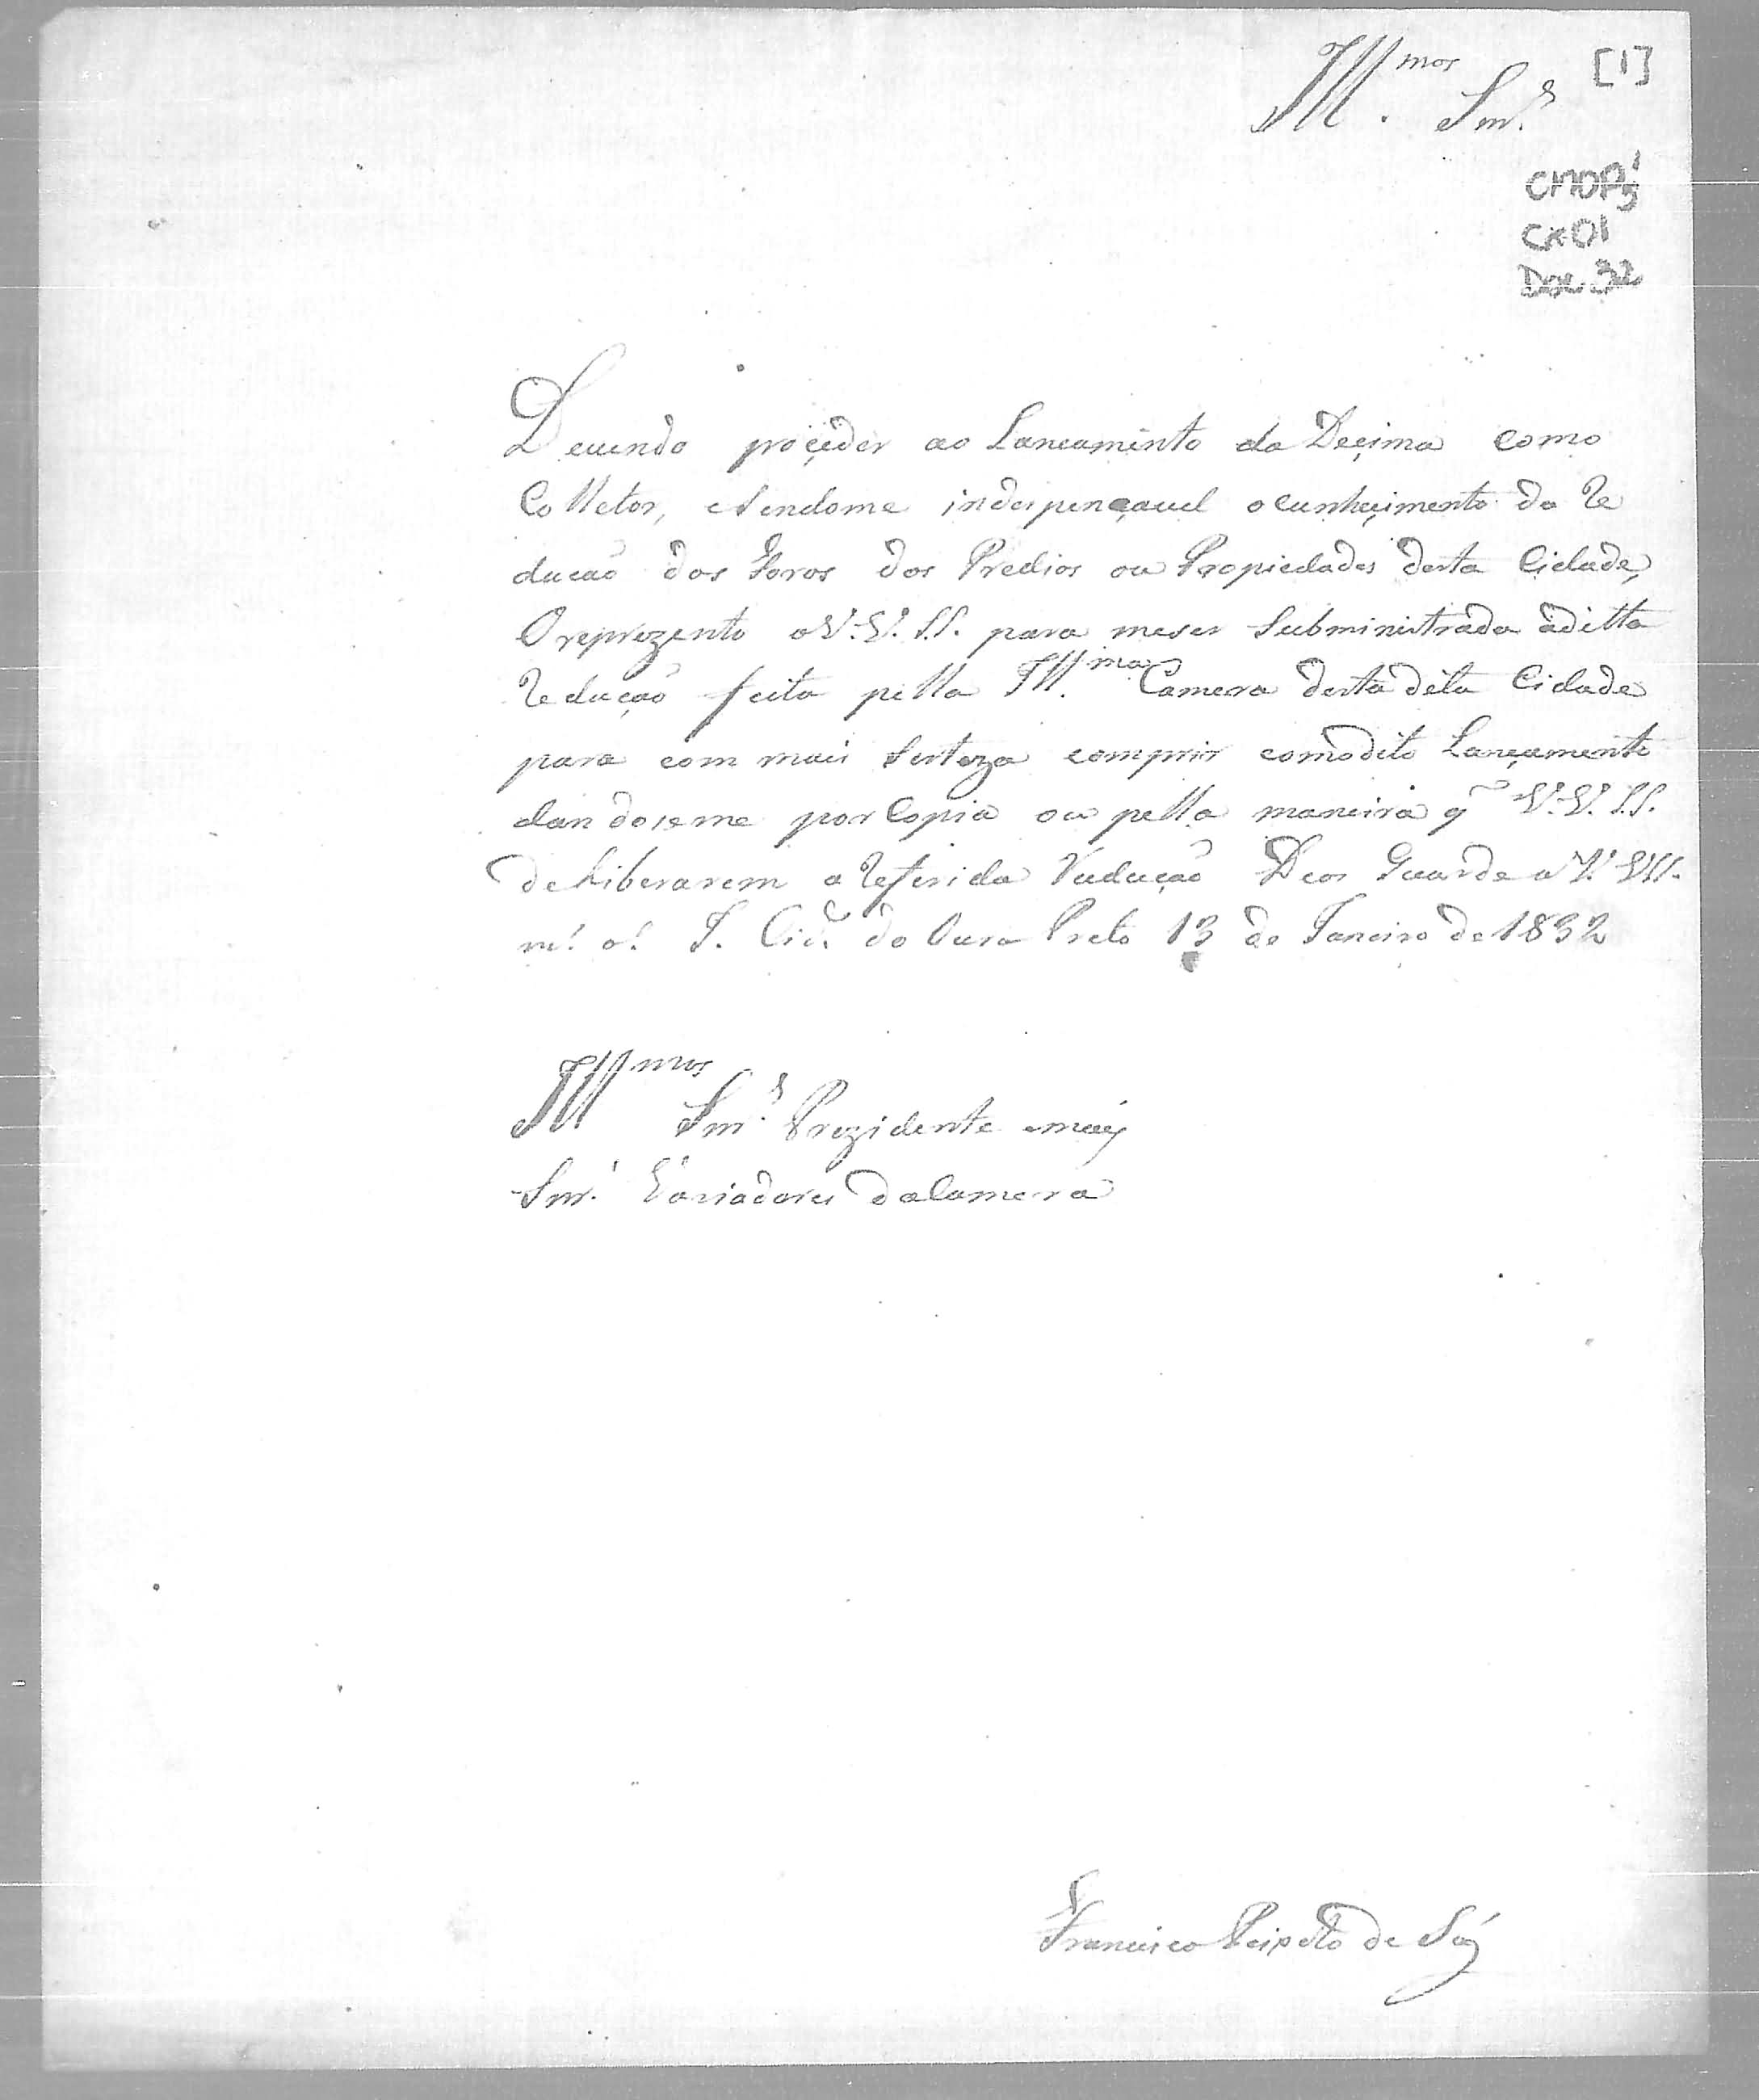 Ill.mos Snr.s [1]
CMOP
CX01
Doc 32
Deuendo proçeder ao Lancamento da Deçima como
Colletor, eSendome indespençauel oCunheçimento da Re
ducaõ dos Foros dos Predios ou Propiedades desta Cidade,
O reprezento aV.V. S.S. para meser Subministrada aditta
Reduçaõ feita pella Ill.ma Camera desta dita Cidade
para com mais Serteza comprir comodito Lançamento
dandoseme por Copia ou pella maneira q V.V. S.S.
deLiberarem a Referida Reduçaõ Deos Guarde a V.VSS.
m.s a.s I. Cid.e do Ouro Preto 13 de Janeiro de 1832
Ill.mos Snr.s Prezidente emais
Snr.s Variadores daCamera
Francisco Peixoto de Sá